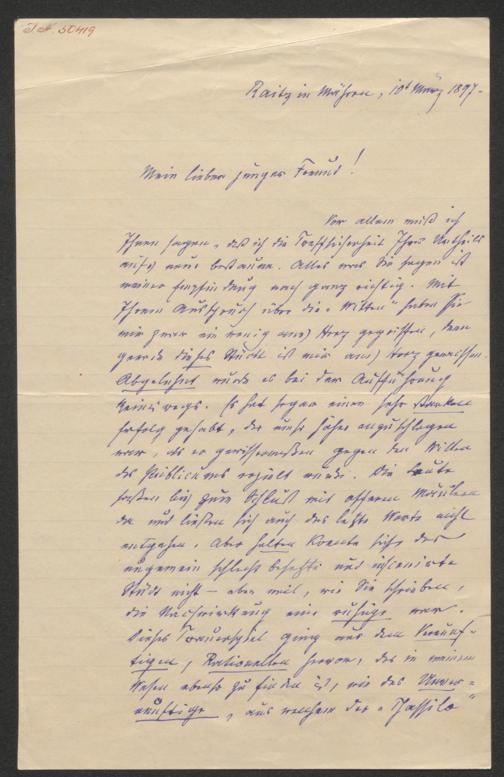 J.N. 50419
Raitz in Mähren, 10t März 1897.
Mein lieber junger Freund!
Vor allem muß ich
Ihnen sagen, daß ich die Treffsicherheit Ihres Urtheils
aufs neue bestaune. Alles was Sie sagen ist
meiner Empfindung nach ganz richtig. Mit
Ihrem Ausspruch über die "Witten" haben Sie
mir zwar ein wenig ans Herz gegriffen, denn
gerade dieses Stück ist mir ans Herz gewachsen.
Abgelehnt wurde es bei der Aufführung
keineswegs. Es hat sogar einen sehr starken
Erfolg gehabt, der umso höher anzuschlagen
war, als er gewissermaßen gegen den Willen
des Publicums erzielt wurde. Die Leute
saßen bis zum Schluß mit offenem Mäulern
da und ließen sich auch das letzte Wort nicht
entgehen. Aber halten konnte sich das
ungemein schlecht besetzte und inscenirte
Stück nicht – eben weil, wie Sie schreiben,
die Nachwirkung eine ruhige war.
Dieses Trauerspiel ging aus dem Vernünf-
tigen, Rationellen hervor, das in meinem
Wesen ebenso zu finden ist, wie das Unver-
nünftige, aus welchem der "Thassilo"